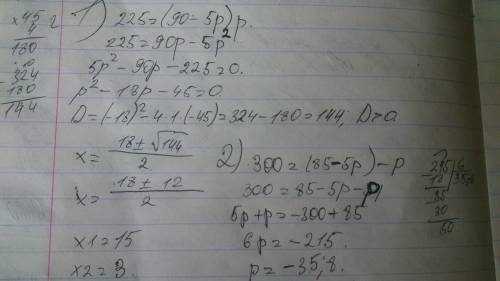 x 45
4
180
324
- 180
144
1) 225 = (90 - 5p) p.
225 = 90p - 5p²
5p² - 90p - 225 = 0.
p² - 18p - 45 = 0.
D = (-18)² - 4 · 1 · (-45) = 324 - 180 = 144, D > 0
x = (18 ± √144) / 2
x = (18 ± 12) / 2
x1 = 15
x2 = 3
2) 300 = (85 - 5p) - p
300 = 85 - 5p - p
5p + p = -300 + 85
6p = -215.
p = -35,8.
215 | 6
18 | 35,8
35
30
60